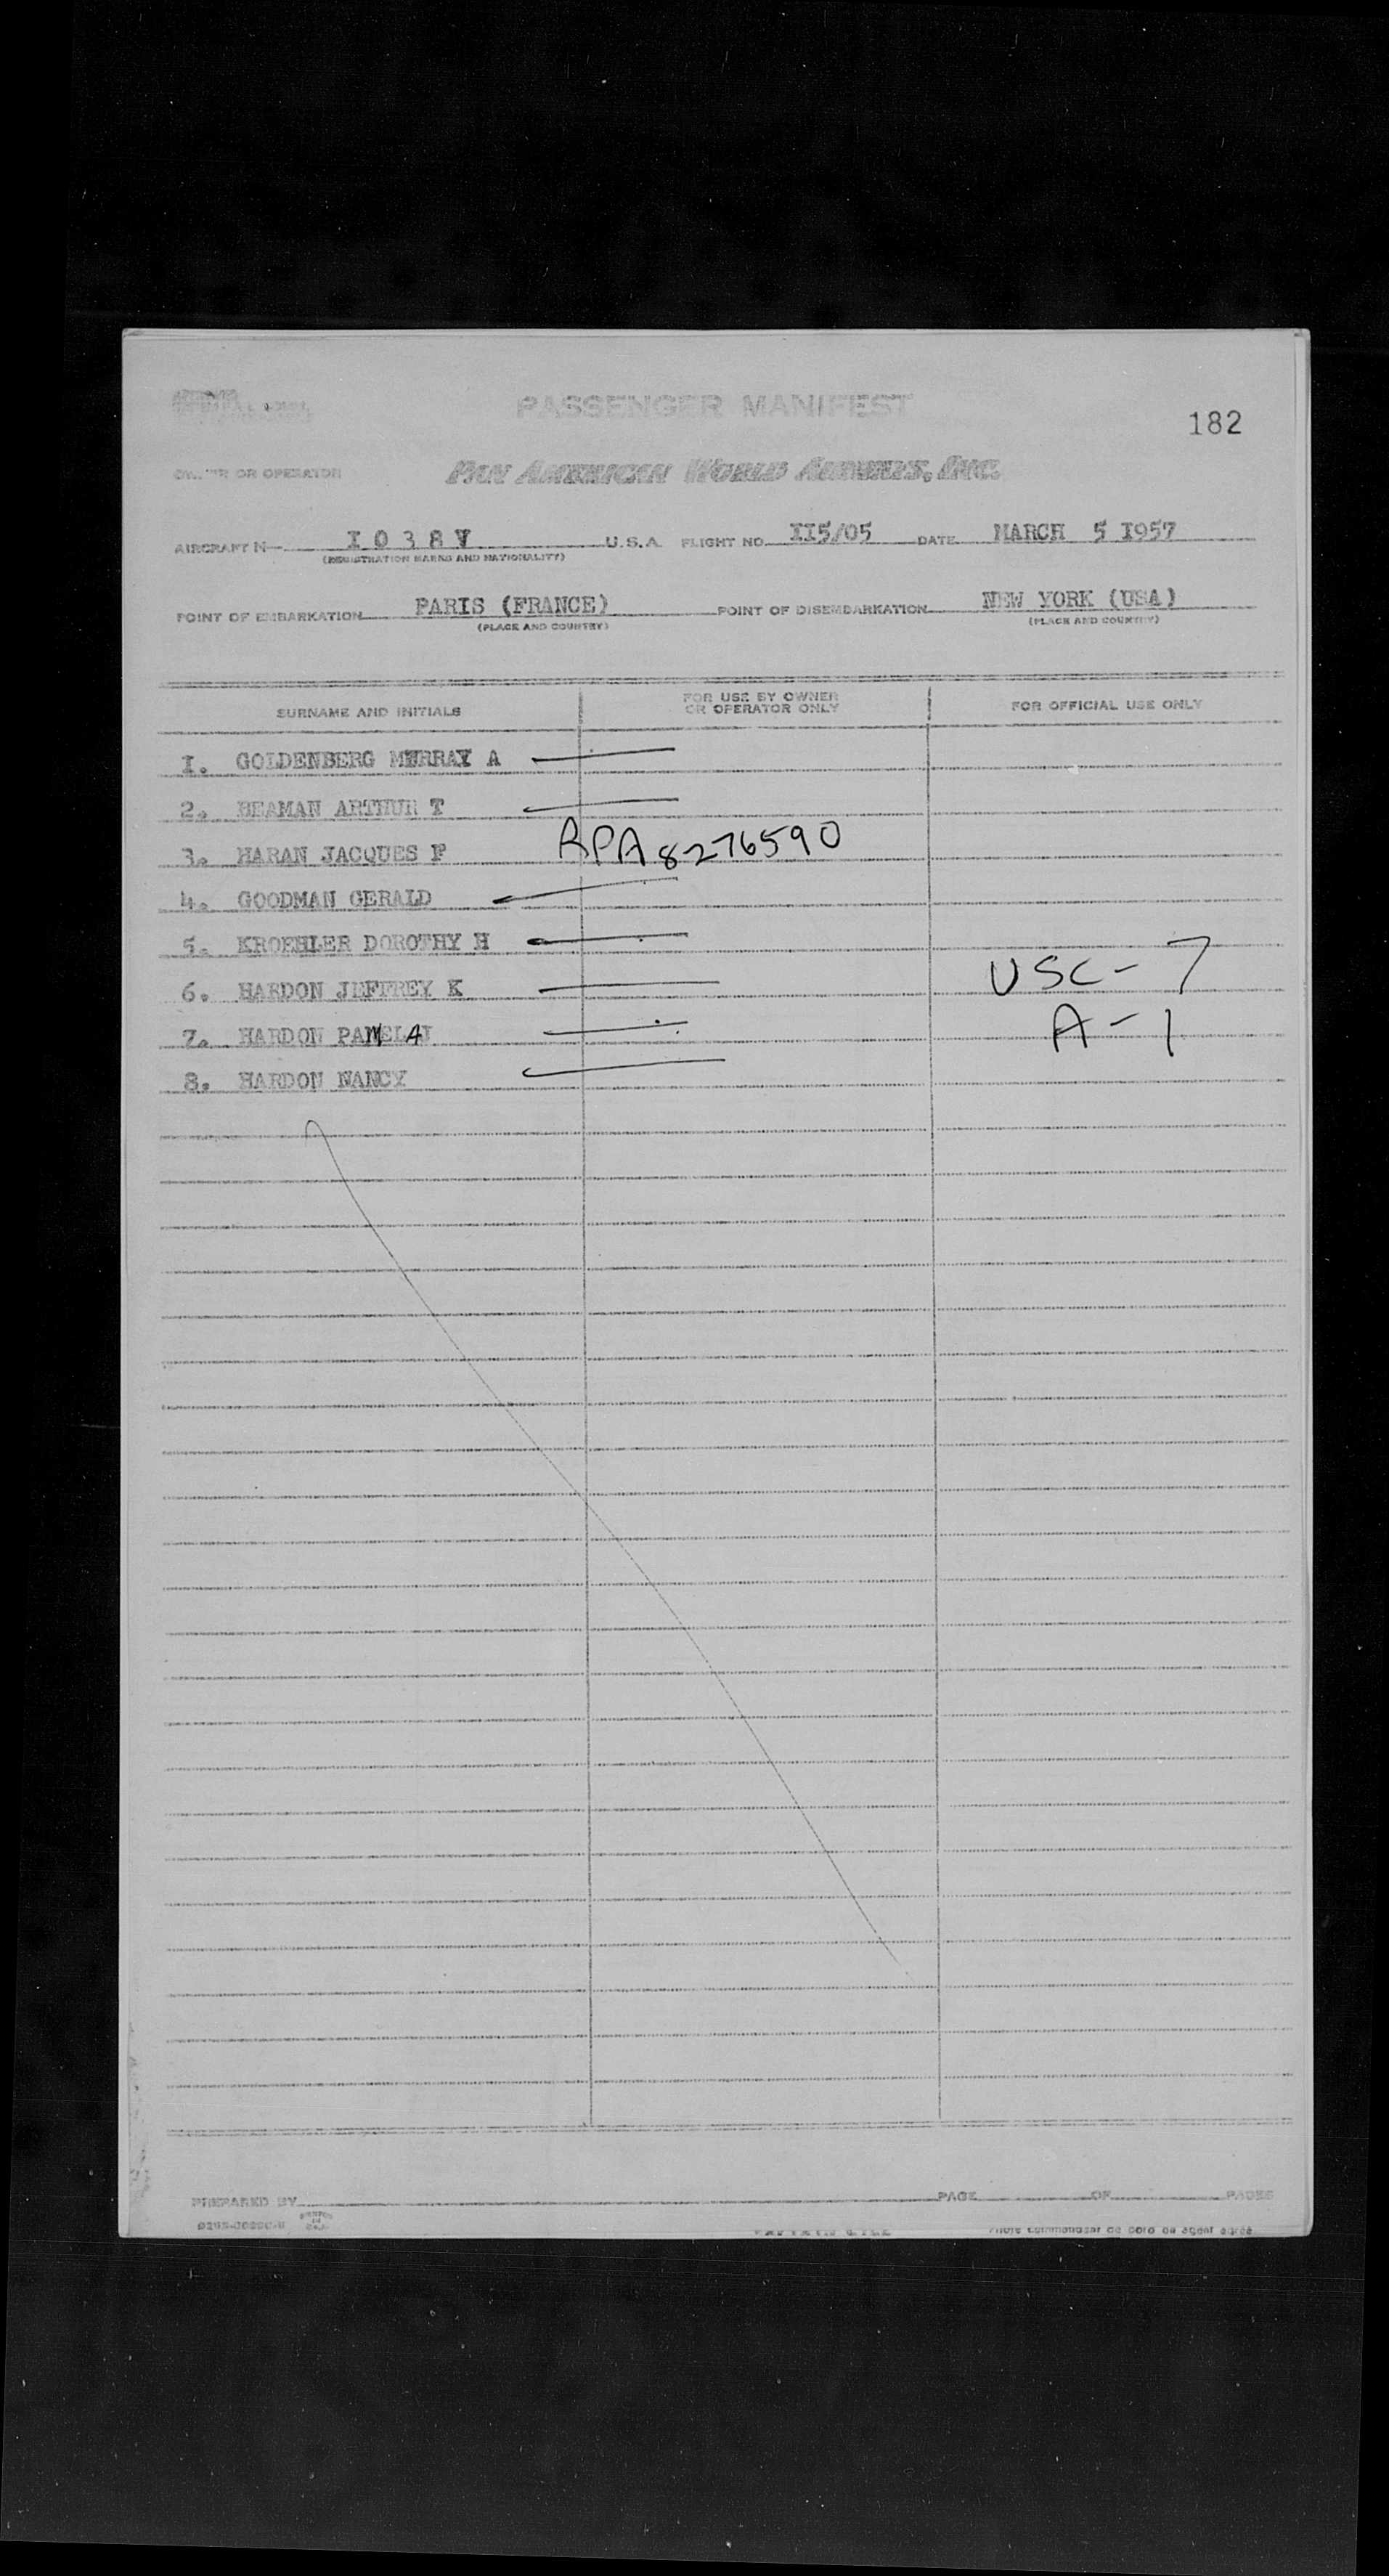 PASSENGER MANIFEST
182
OWNER OR OPERATOR
PAN AMERICAN WORLD AIRWAYS, INC.
AIRCRAFT N- I 0 3 8 V U.S.A. FLIGHT NO. II5/05 DATE MARCH 5 I957
(REGISTRATION MARKS AND NATIONALITY)
POINT OF EMBARKATION PARIS (FRANCE) POINT OF DISEMBARKATION NEW YORK (USA)
(PLACE AND COUNTRY) (PLACE AND COUNTRY)
SURNAME AND INITIALS FOR USE BY OWNER OR OPERATOR ONLY FOR OFFICIAL USE ONLY
I. GOLDENBERG MURRAY A
2. BEAMAN ARTHUR T
3. HARAN JACQUES F RPA 8276590
4. GOODMAN GERALD
5. KROEHLER DOROTHY H
6. HARDON JEFFREY K USC-7
7. HARDON PAMELA A-1
8. HARDON NANCY
PREPARED BY PAGE OF PAGES